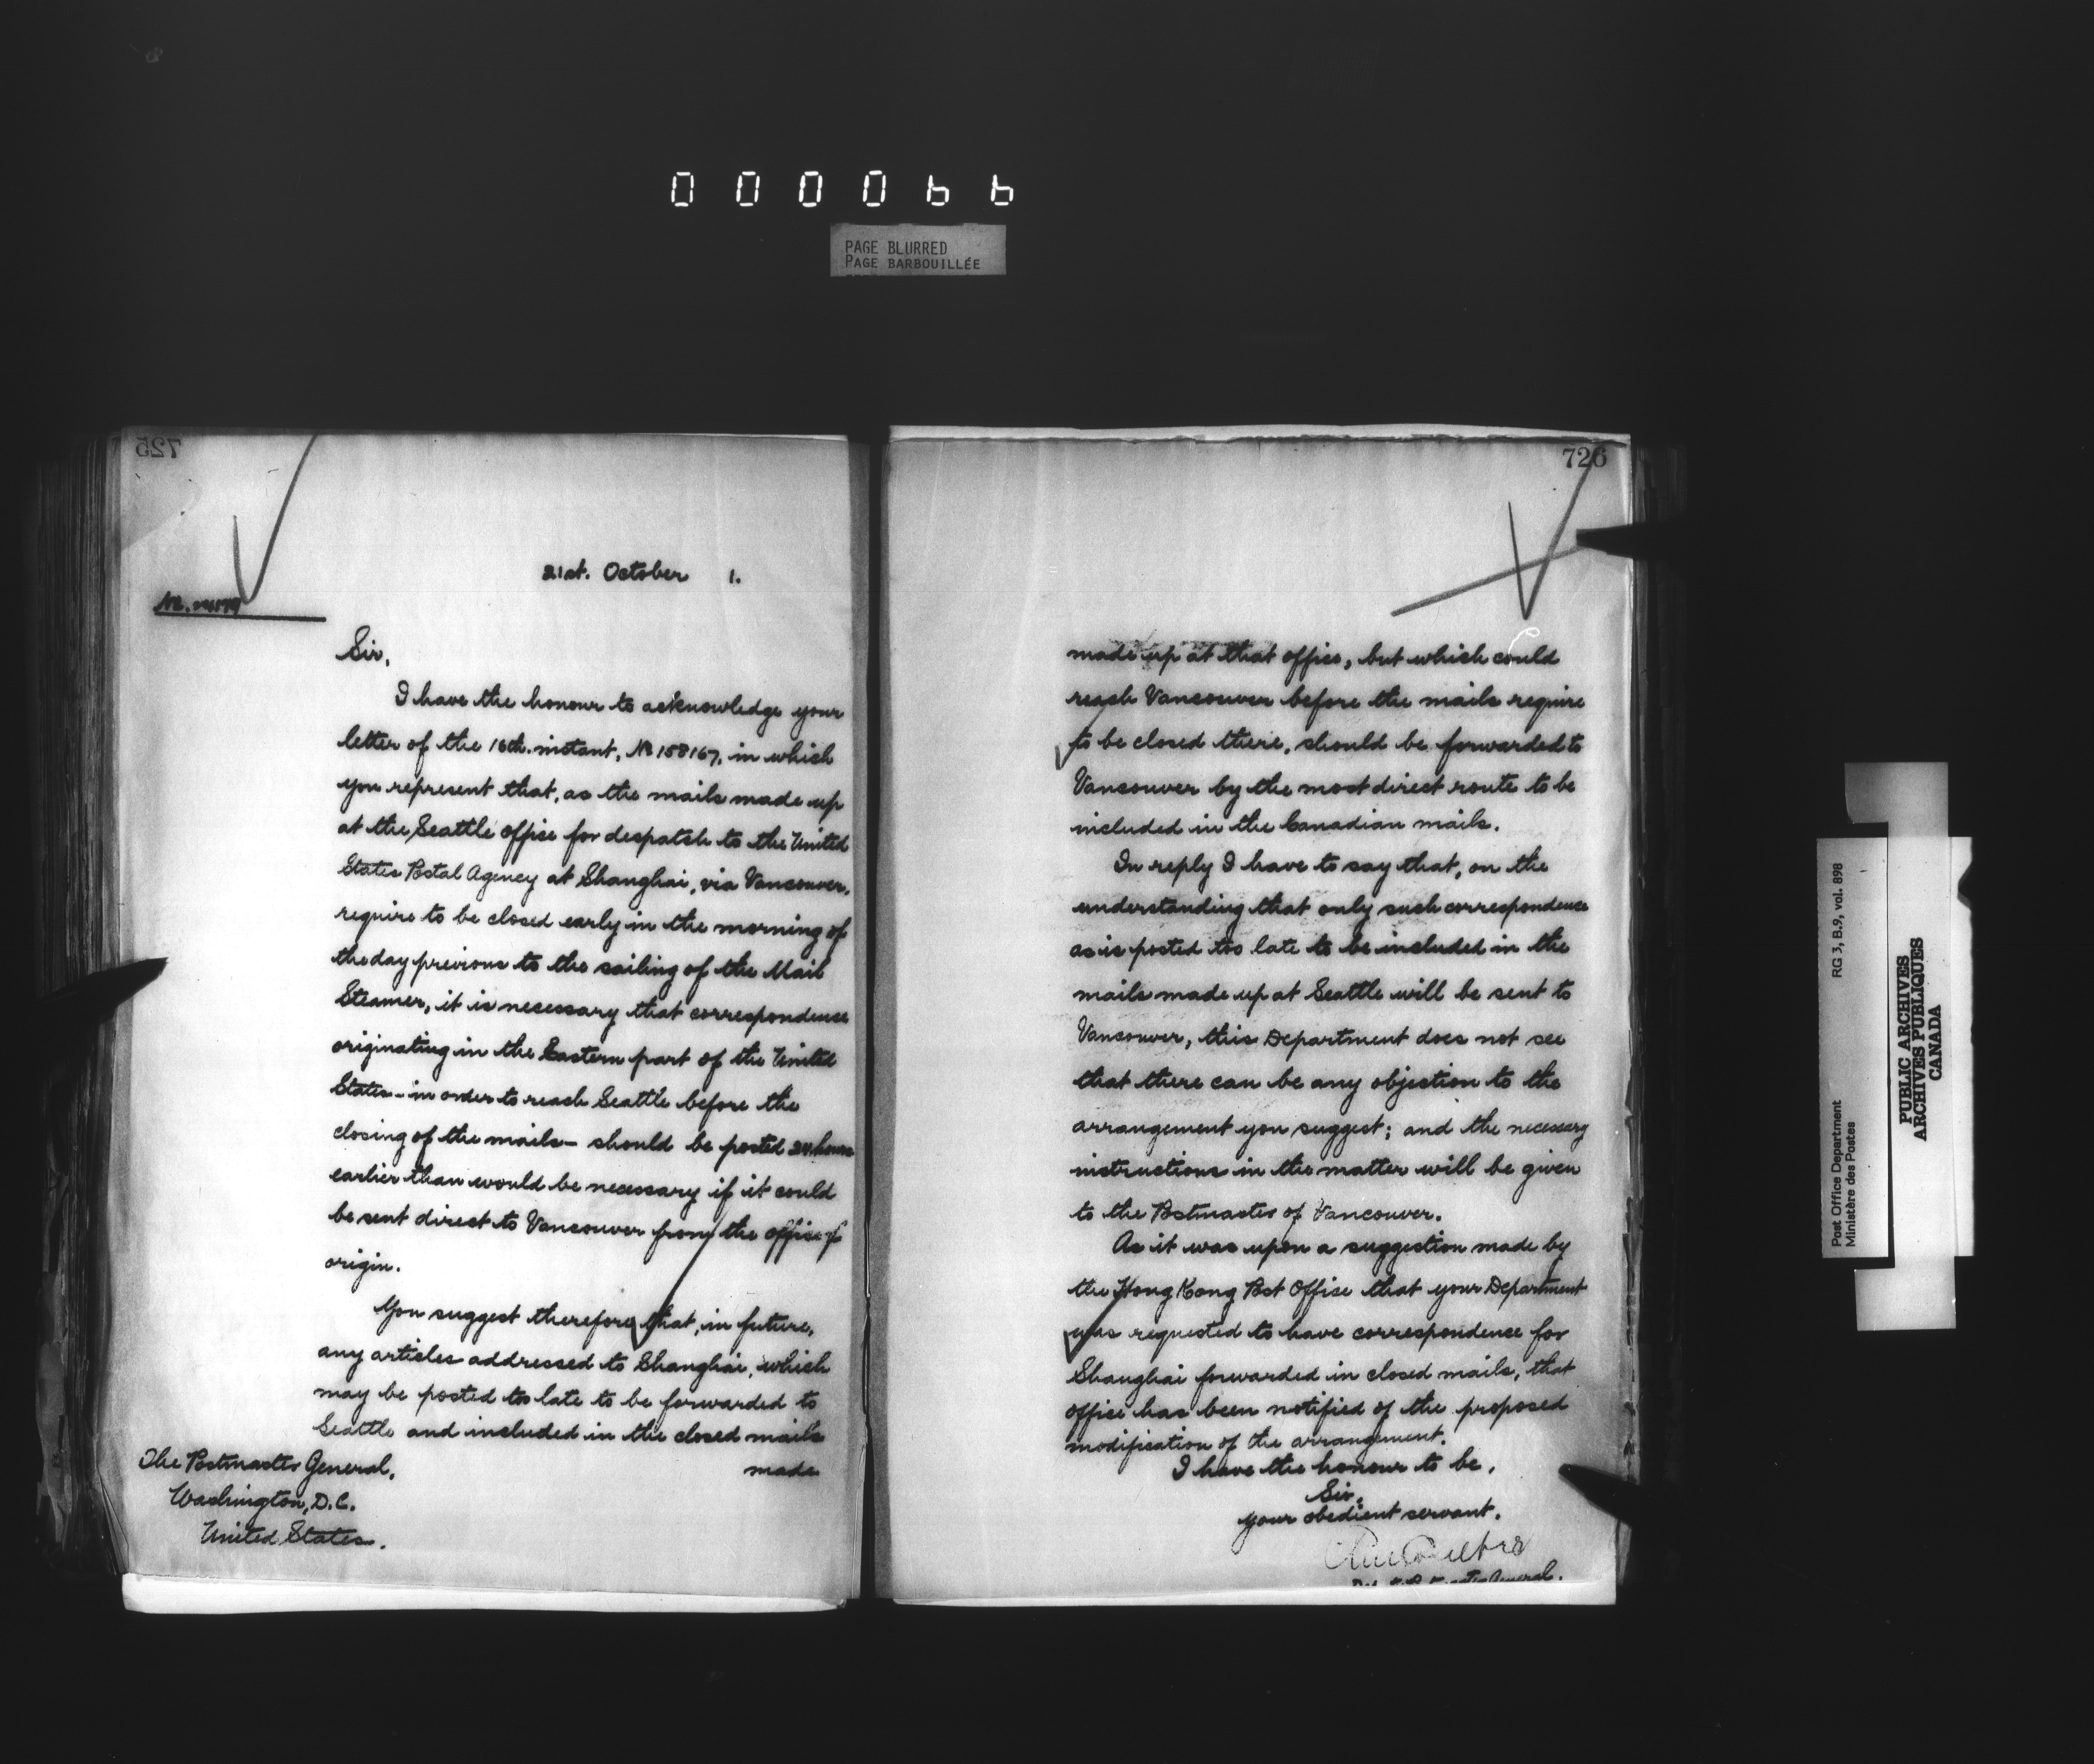 000066
PAGE BLURRED
PAGE BARBOUILLÉE
725
21st. October 1.
Sir,
I have the honour to acknowledge your
letter of the 16th. instant, No 158167, in which
you represent that, as the mails made up
at the Seattle office for despatch to the United
States Postal Agency at Shanghai, via Vancouver,
require to be closed early in the morning of
the day previous to the sailing of the Mail
Steamer, it is necessary that correspondence
originating in the Eastern part of the United
States - in order to reach Seattle before the
closing of the mails - should be posted 24 hours
earlier than would be necessary if it could
be sent direct to Vancouver from the office of
origin.
You suggest therefore that, in future,
any articles addressed to Shanghai, which
may be posted too late to be forwarded to
Seattle and included in the closed mails
made
The Postmaster General,
Washington, D.C.
United States.
726
made up at that office, but which could
reach Vancouver before the mails require
to be closed there, should be forwarded to
Vancouver by the most direct route to be
included in the Canadian mails.
In reply I have to say that, on the
understanding that only such correspondence
as is posted too late to be included in the
mails made up at Seattle will be sent to
Vancouver, this Department does not see
that there can be any objection to the
arrangement you suggest; and the necessary
instructions in the matter will be given
to the Postmaster of Vancouver.
As it was upon a suggestion made by
the Hong Kong Post Office that your Department
was requested to have correspondence for
Shanghai forwarded in closed mails, that
office has been notified of the proposed
modification of the arrangement.
I have the honour to be,
Sir,
your obedient servant.
General.
RG 3, B.9, vol. 898
Post Office Department
Ministère des Postes
PUBLIC ARCHIVES
ARCHIVES PUBLIQUES
CANADA